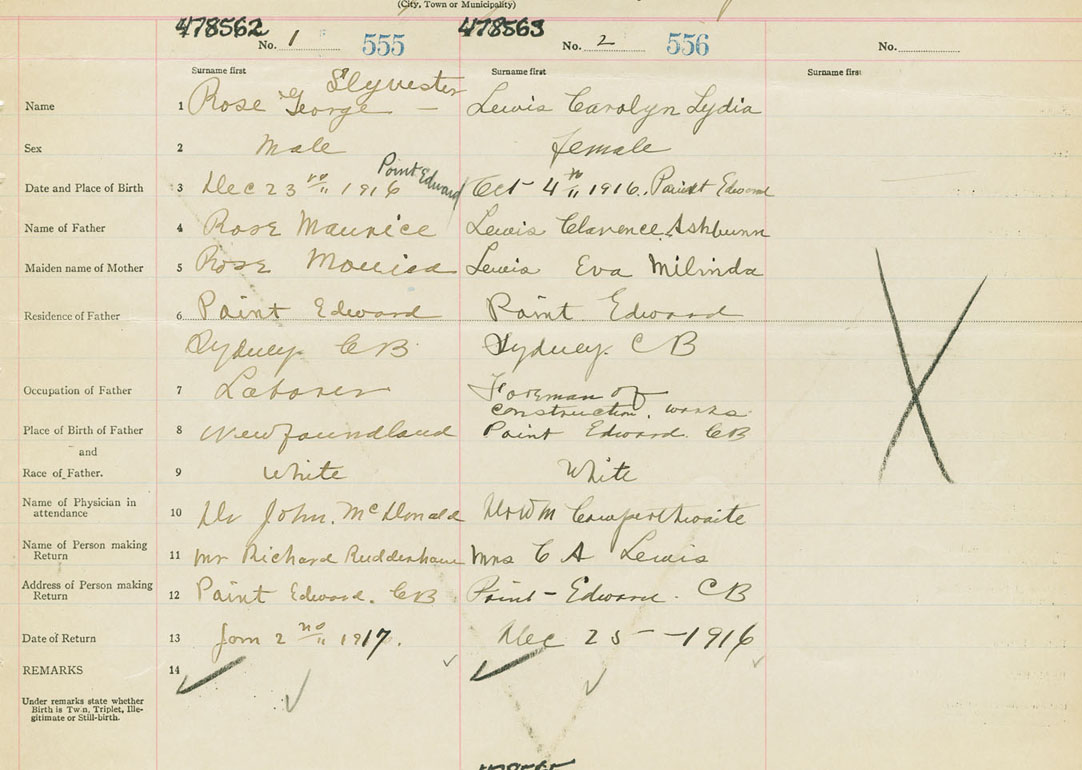 (City, Town or Municipality)
478562 478563
No. 1 555 No. 2 556 No.
Surname first Surname first Surname first
Slyvester
Name 1 Rose George Lewis Carolyn Lydia
Sex 2 Male female
Point Edward
Date and Place of Birth 3 Dec 23 rd 1916 Oct 4 th 1916. Point Edward
Name of Father 4 Rose Maurice Lewis Clarence Ashburn
Maiden name of Mother 5 Rose Lewis Eva Milinda
Residence of Father 6 Point Edward Point Edward
Sydney CB Sydney. CB
Occupation of Father 7 Laborer Foreman of
construction. works
Place of Birth of Father 8 Newfoundland Point Edward CB
and
Race of Father. 9 White White
Name of Physician in
attendance 10 Dr John. McDonald
Name of Person making
Return 11 Mr Richard Mrs C A Lewis
Address of Person making
Return 12 Point Edward. CB Point - Edward. CB
Date of Return 13 Jan 2 nd 1917. Dec 25 - 1916
REMARKS 14
Under remarks state whether
Birth is Twin, Triplet, Ille-
gitimate or Still-birth.